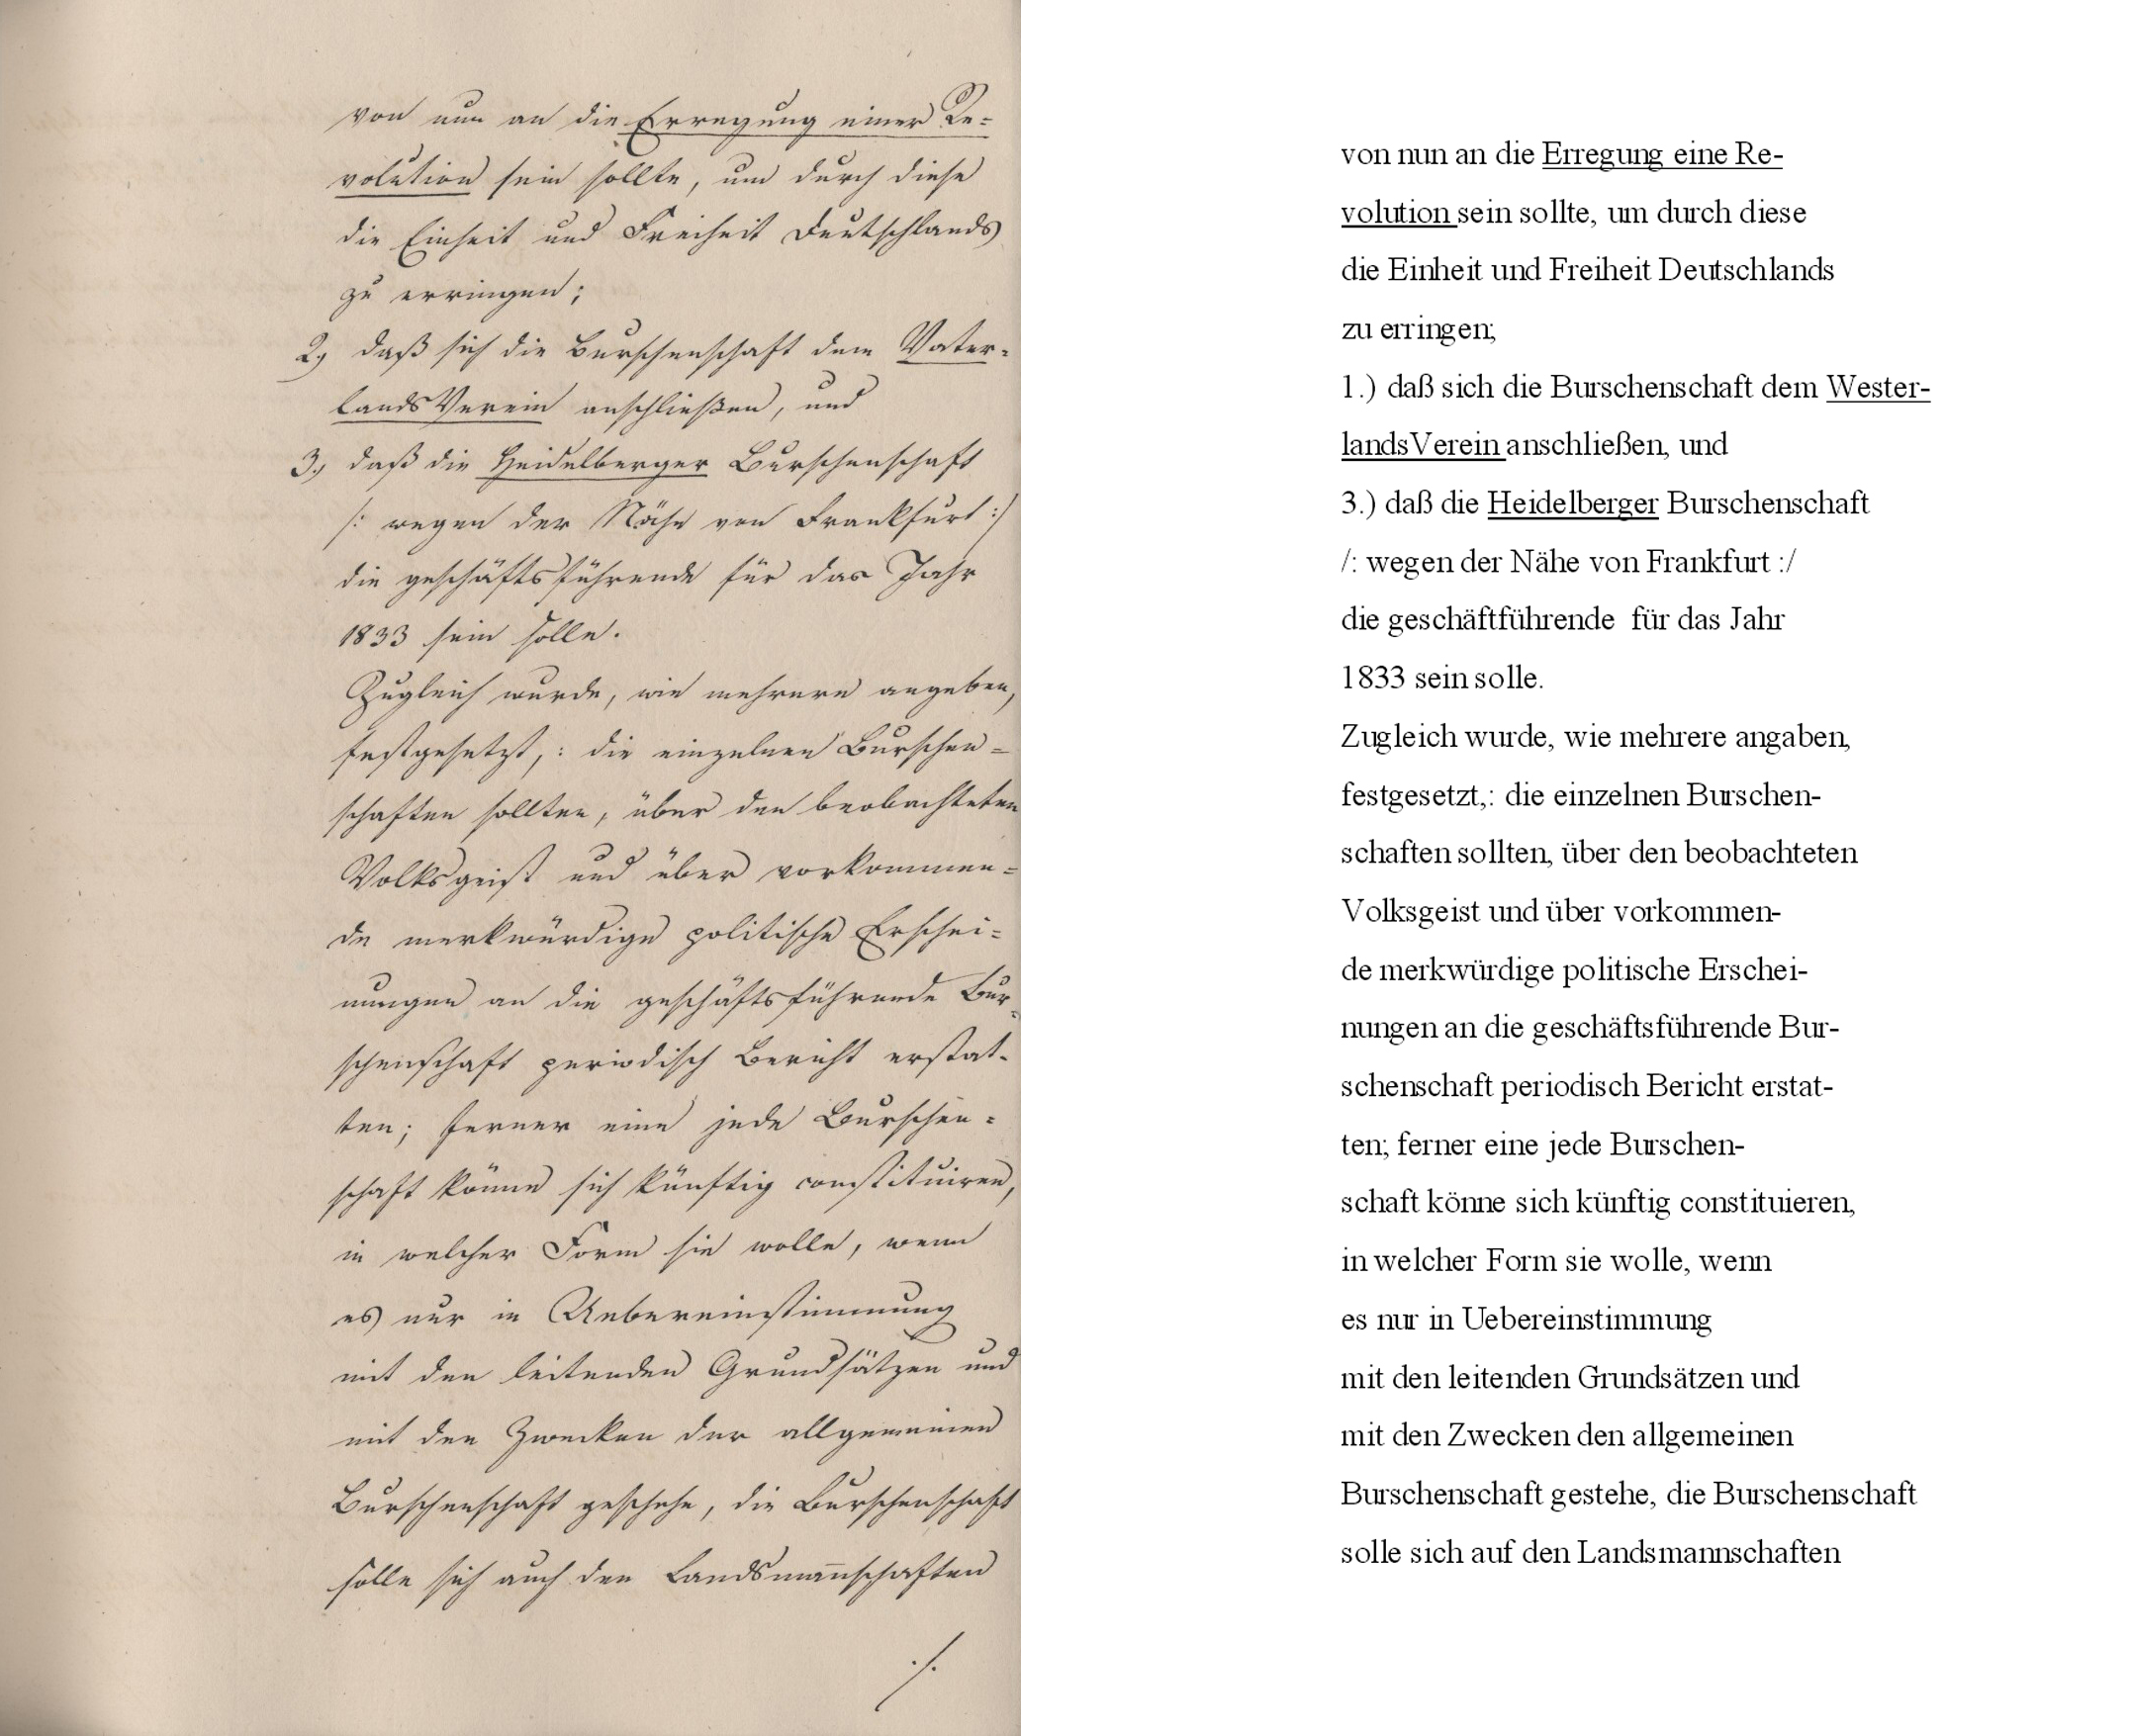 von nun an die Erregung einer Re-
volution sein sollte, um durch diese
die Einheit und Freiheit Deutschlands
zu erringen;
2.) daß sich die Burschenschaft dem Vater-
landsVerein anschließen, und
3.) daß die Heidelberger Burschenschaft
/: wegen der Nähe von Frankfurt :/
die geschäftsführende für das Jahr
1833 sein solle.
Zugleich wurde, wie mehrere angeben,
festgesetzt,: die einzelnen Burschen-
schaften sollten, über den beobachteten
Volksgeist und über vorkommen-
de merkwürdige politische Erschei-
nungen an die geschäftsführende Bur-
schenschaft periodisch Bericht erstat-
ten; ferner eine jede Burschen-
schaft könne sich künftig constituiren,
in welcher Form sie wolle, wenn
es nur in Uebereinstimmung
mit den leitenden Grundsätzen und
mit den Zwecken der allgemeinen
Burschenschaft geschehe, die Burschenschaft
solle sich auch den Landsmannschaften
./.
von nun an die Erregung eine Re-
volution sein sollte, um durch diese
die Einheit und Freiheit Deutschlands
zu erringen;
1.) daß sich die Burschenschaft dem Wester-
landsVerein anschließen, und
3.) daß die Heidelberger Burschenschaft
/: wegen der Nähe von Frankfurt :/
die geschäftführende für das Jahr
1833 sein solle.
Zugleich wurde, wie mehrere angaben,
festgesetzt,: die einzelnen Burschen-
schaften sollten, über den beobachteten
Volksgeist und über vorkommen-
de merkwürdige politische Erschei-
nungen an die geschäftsführende Bur-
schenschaft periodisch Bericht erstat-
ten; ferner eine jede Burschen-
schaft könne sich künftig constituieren,
in welcher Form sie wolle, wenn
es nur in Uebereinstimmung
mit den leitenden Grundsätzen und
mit den Zwecken den allgemeinen
Burschenschaft gestehe, die Burschenschaft
solle sich auf den Landsmannschaften